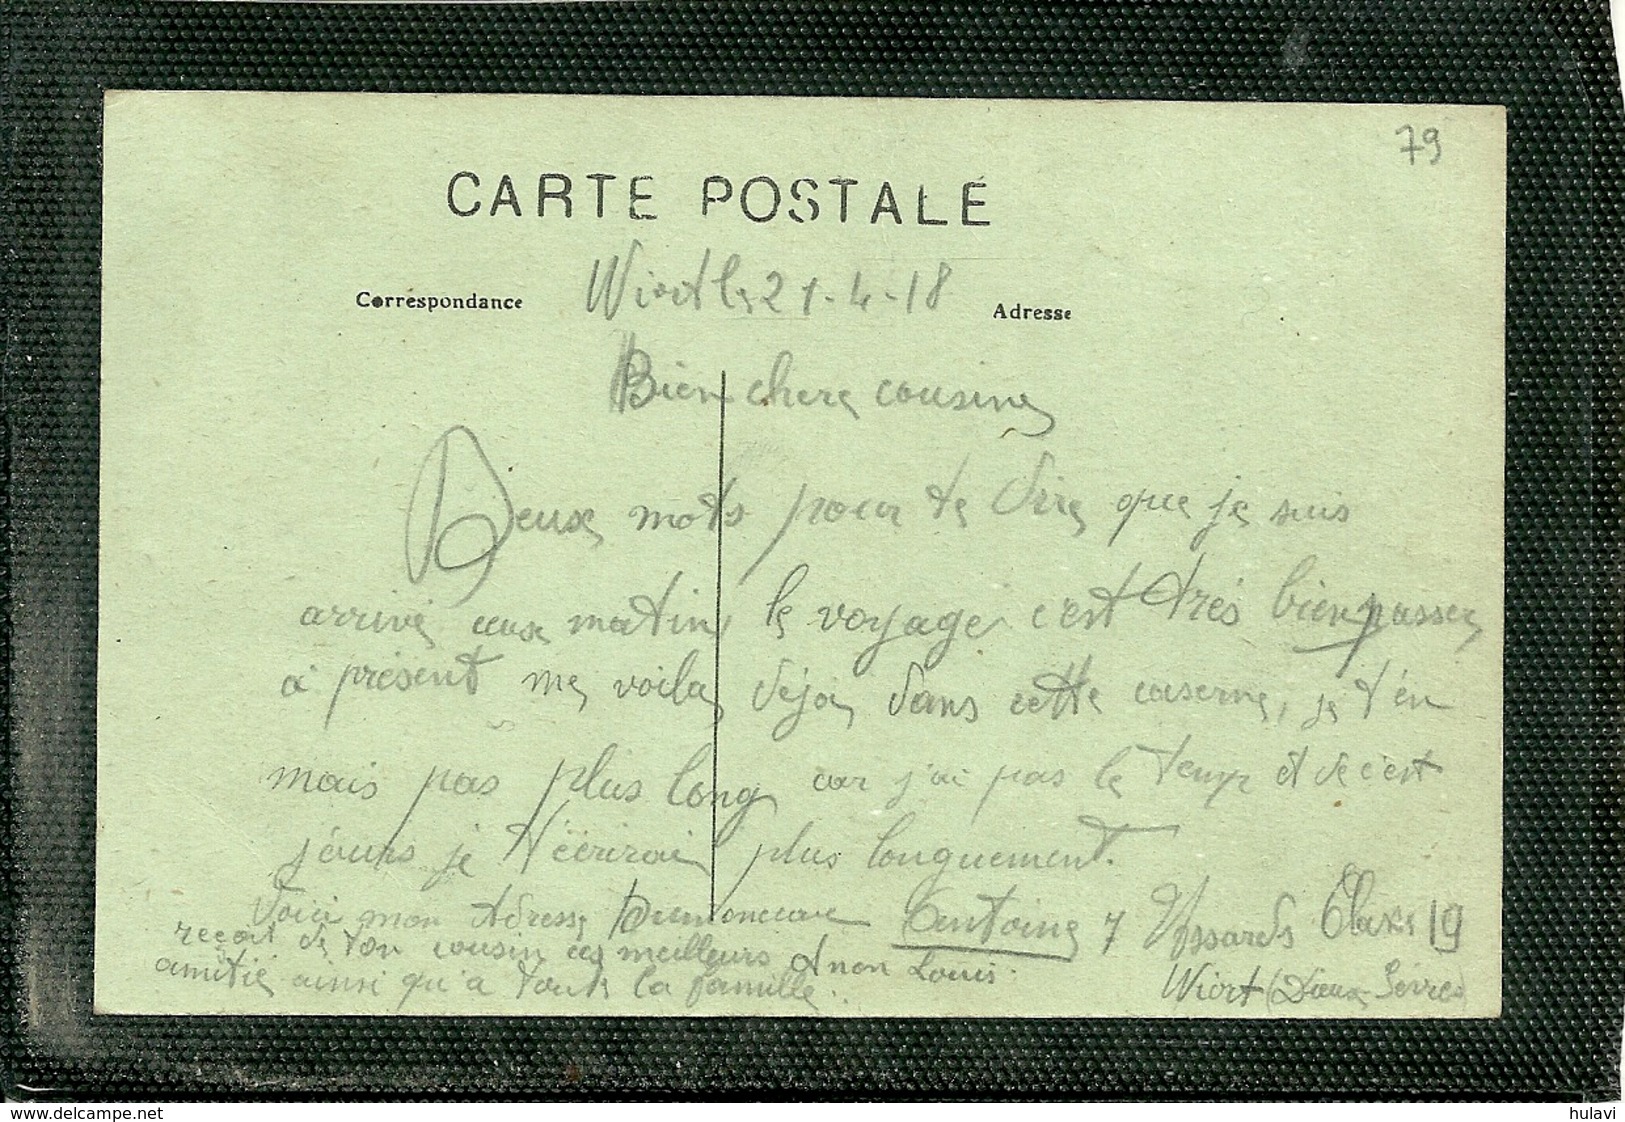 79
CARTE POSTALE
Correspondance
Niort le 21-4-18
Adresse
Bien chere cousine
Deux mots pour te dire que je suis
arrivé ceux matin, le voyage c'est très bien passer
à present me voila déja dans cette caserne, je t'en
mais pas plus long car j'ai pas le temp et de c'est
jours je t'écrirai plus longuement.
Voici mon Adresse Antoine 7 Hussards Classe 19
Niort (Deux Sèvres)
reçoit de ton cousin ces meilleurs et non Louis.
amitié ainsi qu'a toute la famille..
www.delcampe.net
hulavi